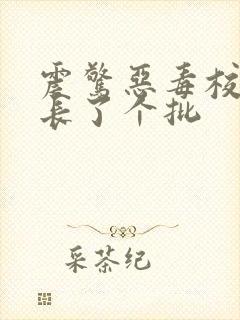 震惊恶毒校
长了个批
采茶纪